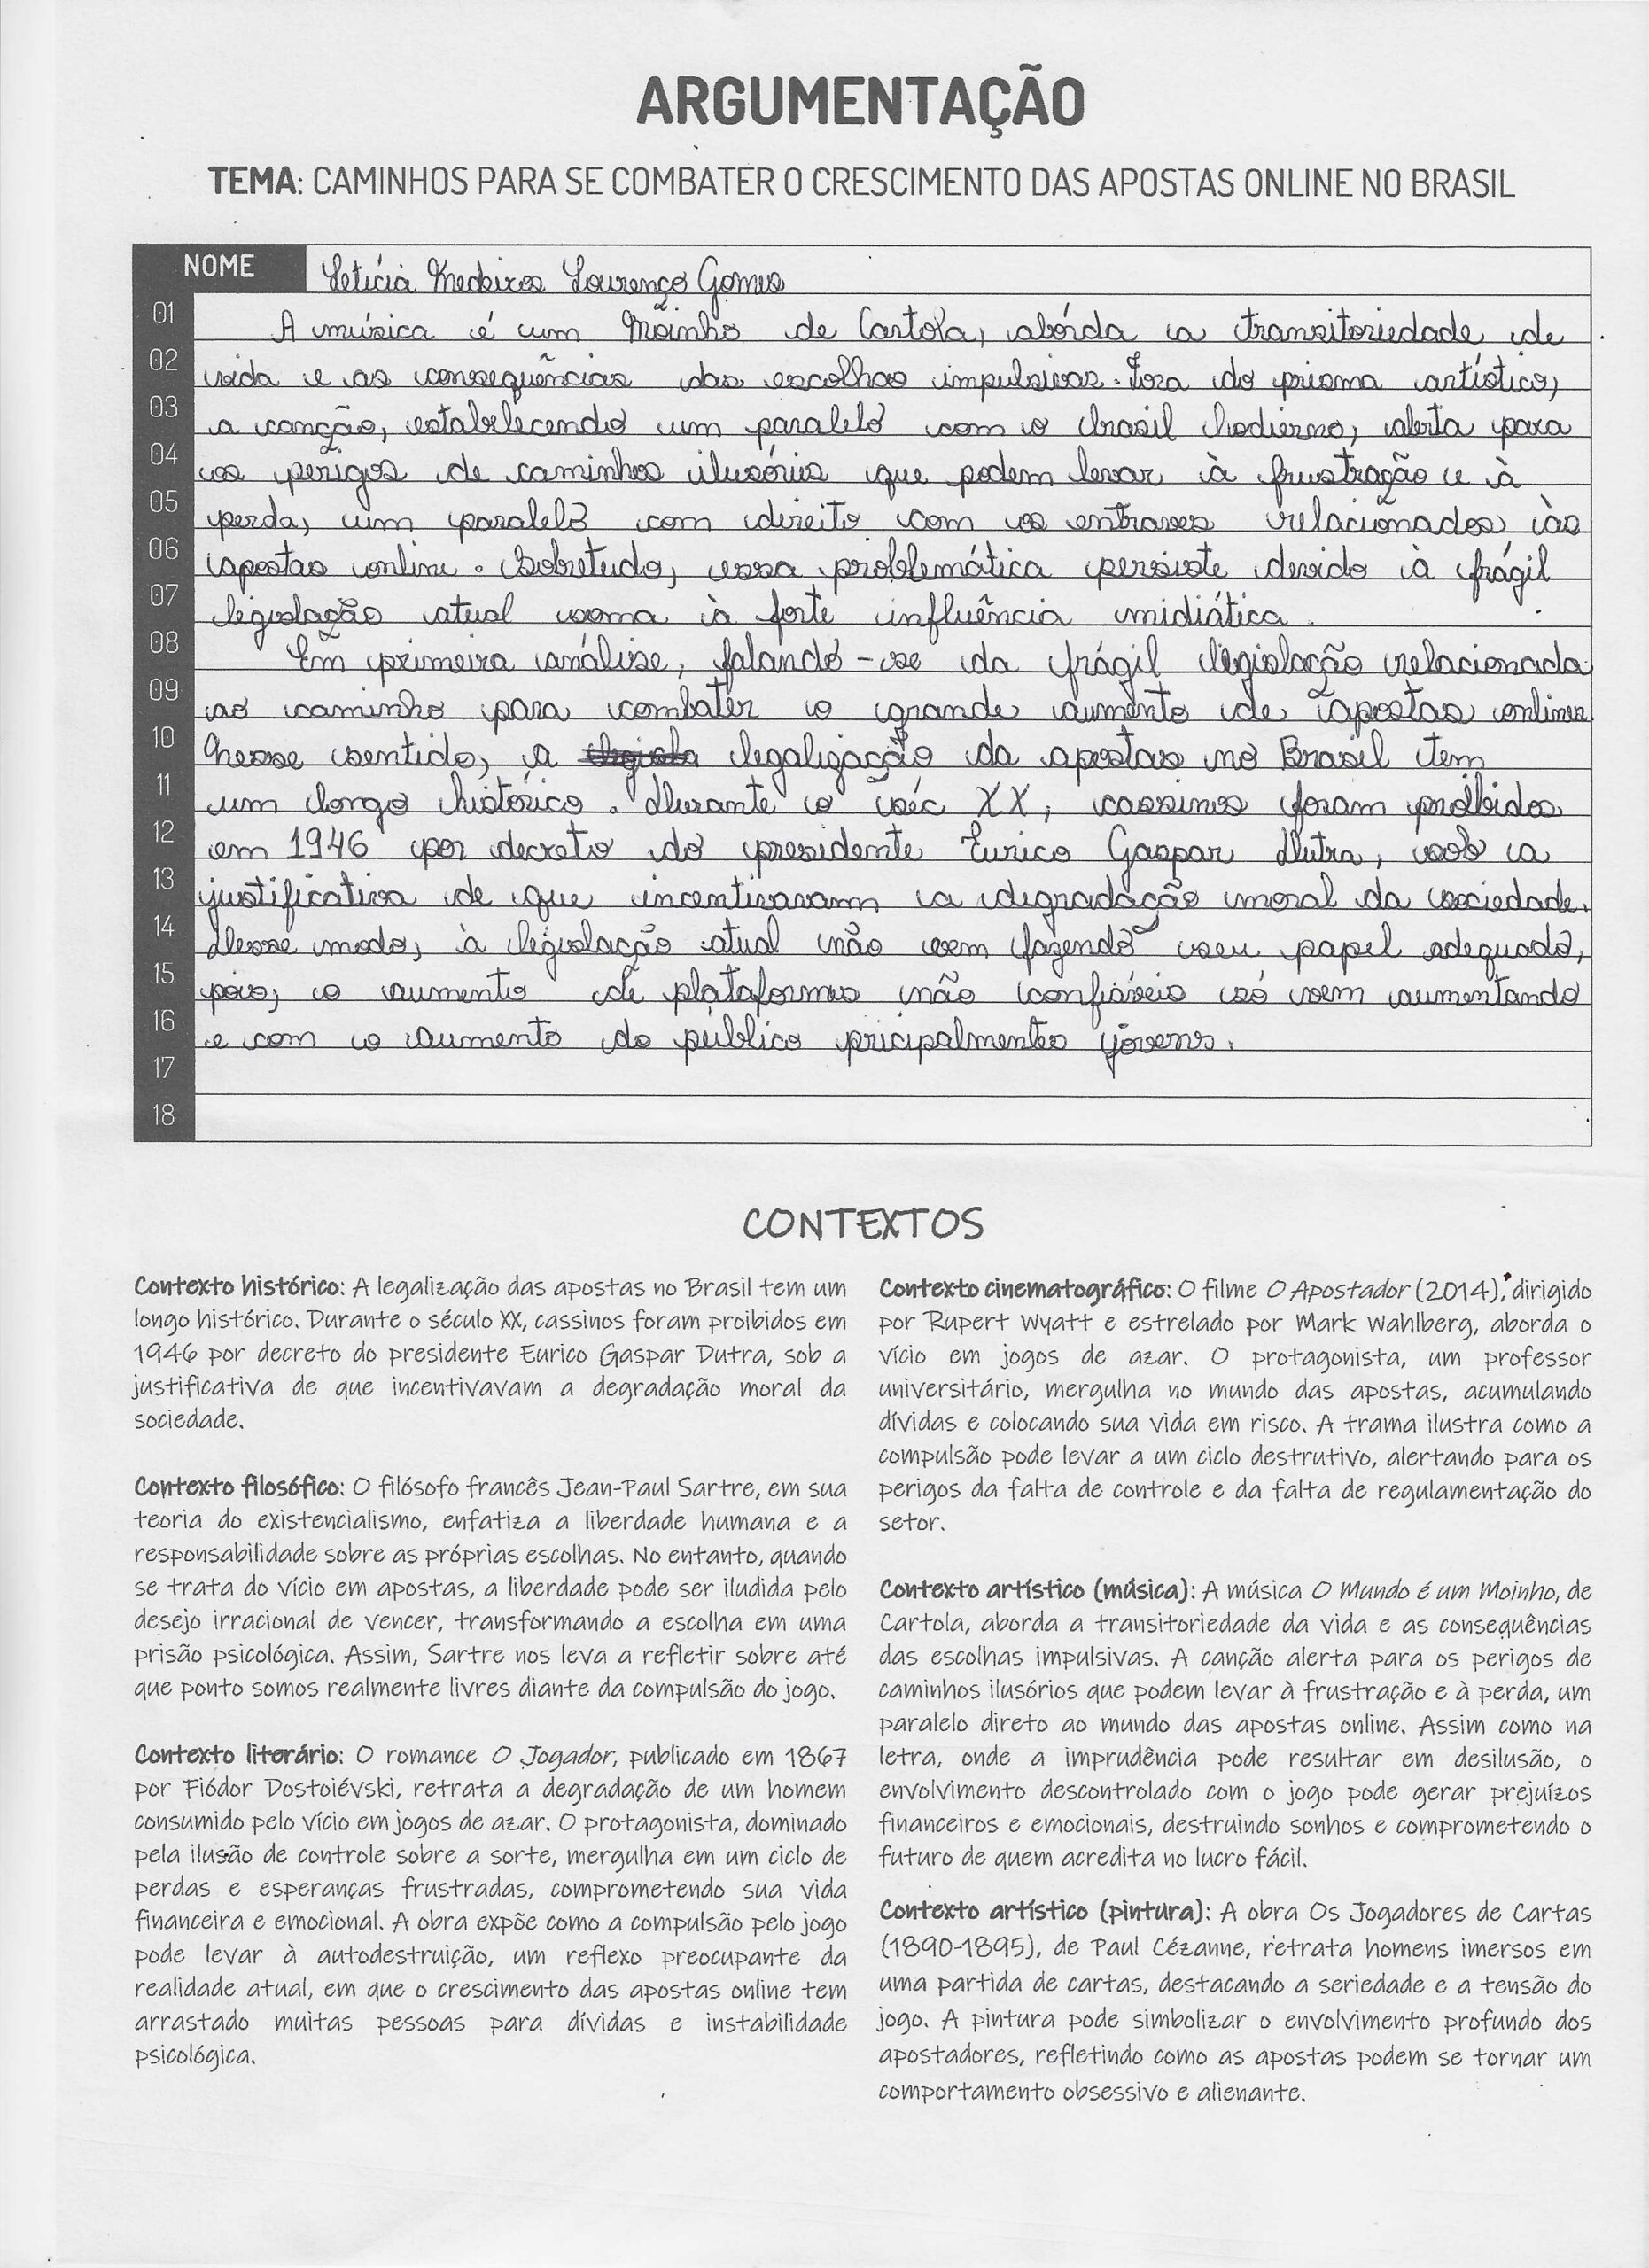 ARGUMENTAÇÃO
TEMA: CAMINHOS PARA SE COMBATER O CRESCIMENTO DAS APOSTAS ONLINE NO BRASIL
NOME Letícia Medeiros Lourenço Gomes
01 A música é um Moinho de Cartola, abórda a transitoriedade de
02 vida e as consequências das escolhas impulsivas. Fora do prisma artístico,
03 a canção, estabelecendo um paralelo com o brasil hodierno, alerta para
04 os perigos de caminhos ilusórios que podem levar à frustração e à
05 perda, um paralelo com direito com os entraves relacionados às
06 apostas online. Sobretudo, essa problemática persiste devido à frágil
07 legislação atual soma à forte influência midiática.
08 Em primeira análise, falando-se da frágil legislação relacionada
09 ao caminho para combater o grande aumento de apostas onlines.
10 Nesse sentido, a legalização da apostas no Brasil tem
11 um longo histórico. Durante o séc XX, cassinos foram proibidos
12 em 1946 por decreto do presidente Eurico Gaspar Dutra, sob a
13 justificativa de que incentivavam a degradação moral da sociedade.
14 Desse modo, à legislação atual não vem fazendo seu papel adequado,
15 pois, o aumento de plataformas não confiáveis só vem aumentando
16 e com o aumento do público pricipalmentes jóvens.
17
18
CONTEXTOS
Contexto histórico: A legalização das apostas no Brasil tem um
longo histórico. Durante o século XX, cassinos foram proibidos em
1946 por decreto do presidente Eurico Gaspar Dutra, sob a
justificativa de que incentivavam a degradação moral da
sociedade.
Contexto filosófico: O filósofo francês Jean-Paul Sartre, em sua
teoria do existencialismo, enfatiza a liberdade humana e a
responsabilidade sobre as próprias escolhas. No entanto, quando
se trata do vício em apostas, a liberdade pode ser iludida pelo
desejo irracional de vencer, transformando a escolha em uma
prisão psicológica. Assim, Sartre nos leva a refletir sobre até
que ponto somos realmente livres diante da compulsão do jogo.
Contexto literário: O romance O Jogador, publicado em 1867
por Fiódor Dostoiévski, retrata a degradação de um homem
consumido pelo vício em jogos de azar. O protagonista, dominado
pela ilusão de controle sobre a sorte, mergulha em um ciclo de
perdas e esperanças frustradas, comprometendo sua vida
financeira e emocional. A obra expõe como a compulsão pelo jogo
pode levar à autodestruição, um reflexo preocupante da
realidade atual, em que o crescimento das apostas online tem
arrastado muitas pessoas para dívidas e instabilidade
psicológica.
Contexto cinematográfico: O filme O Apostador (2014), dirigido
por Rupert Wyatt e estrelado por Mark Wahlberg, aborda o
vício em jogos de azar. O protagonista, um professor
universitário, mergulha no mundo das apostas, acumulando
dívidas e colocando sua vida em risco. A trama ilustra como a
compulsão pode levar a um ciclo destrutivo, alertando para os
perigos da falta de controle e da falta de regulamentação do
setor.
Contexto artístico (música): A música O Mundo é um Moinho, de
Cartola, aborda a transitoriedade da vida e as consequências
das escolhas impulsivas. A canção alerta para os perigos de
caminhos ilusórios que podem levar à frustração e à perda, um
paralelo direto ao mundo das apostas online. Assim como na
letra, onde a imprudência pode resultar em desilusão, o
envolvimento descontrolado com o jogo pode gerar prejuízos
financeiros e emocionais, destruindo sonhos e comprometendo o
futuro de quem acredita no lucro fácil.
Contexto artístico (pintura): A obra Os Jogadores de Cartas
(1890-1895), de Paul Cézanne, retrata homens imersos em
uma partida de cartas, destacando a seriedade e a tensão do
jogo. A pintura pode simbolizar o envolvimento profundo dos
apostadores, refletindo como as apostas podem se tornar um
comportamento obsessivo e alienante.